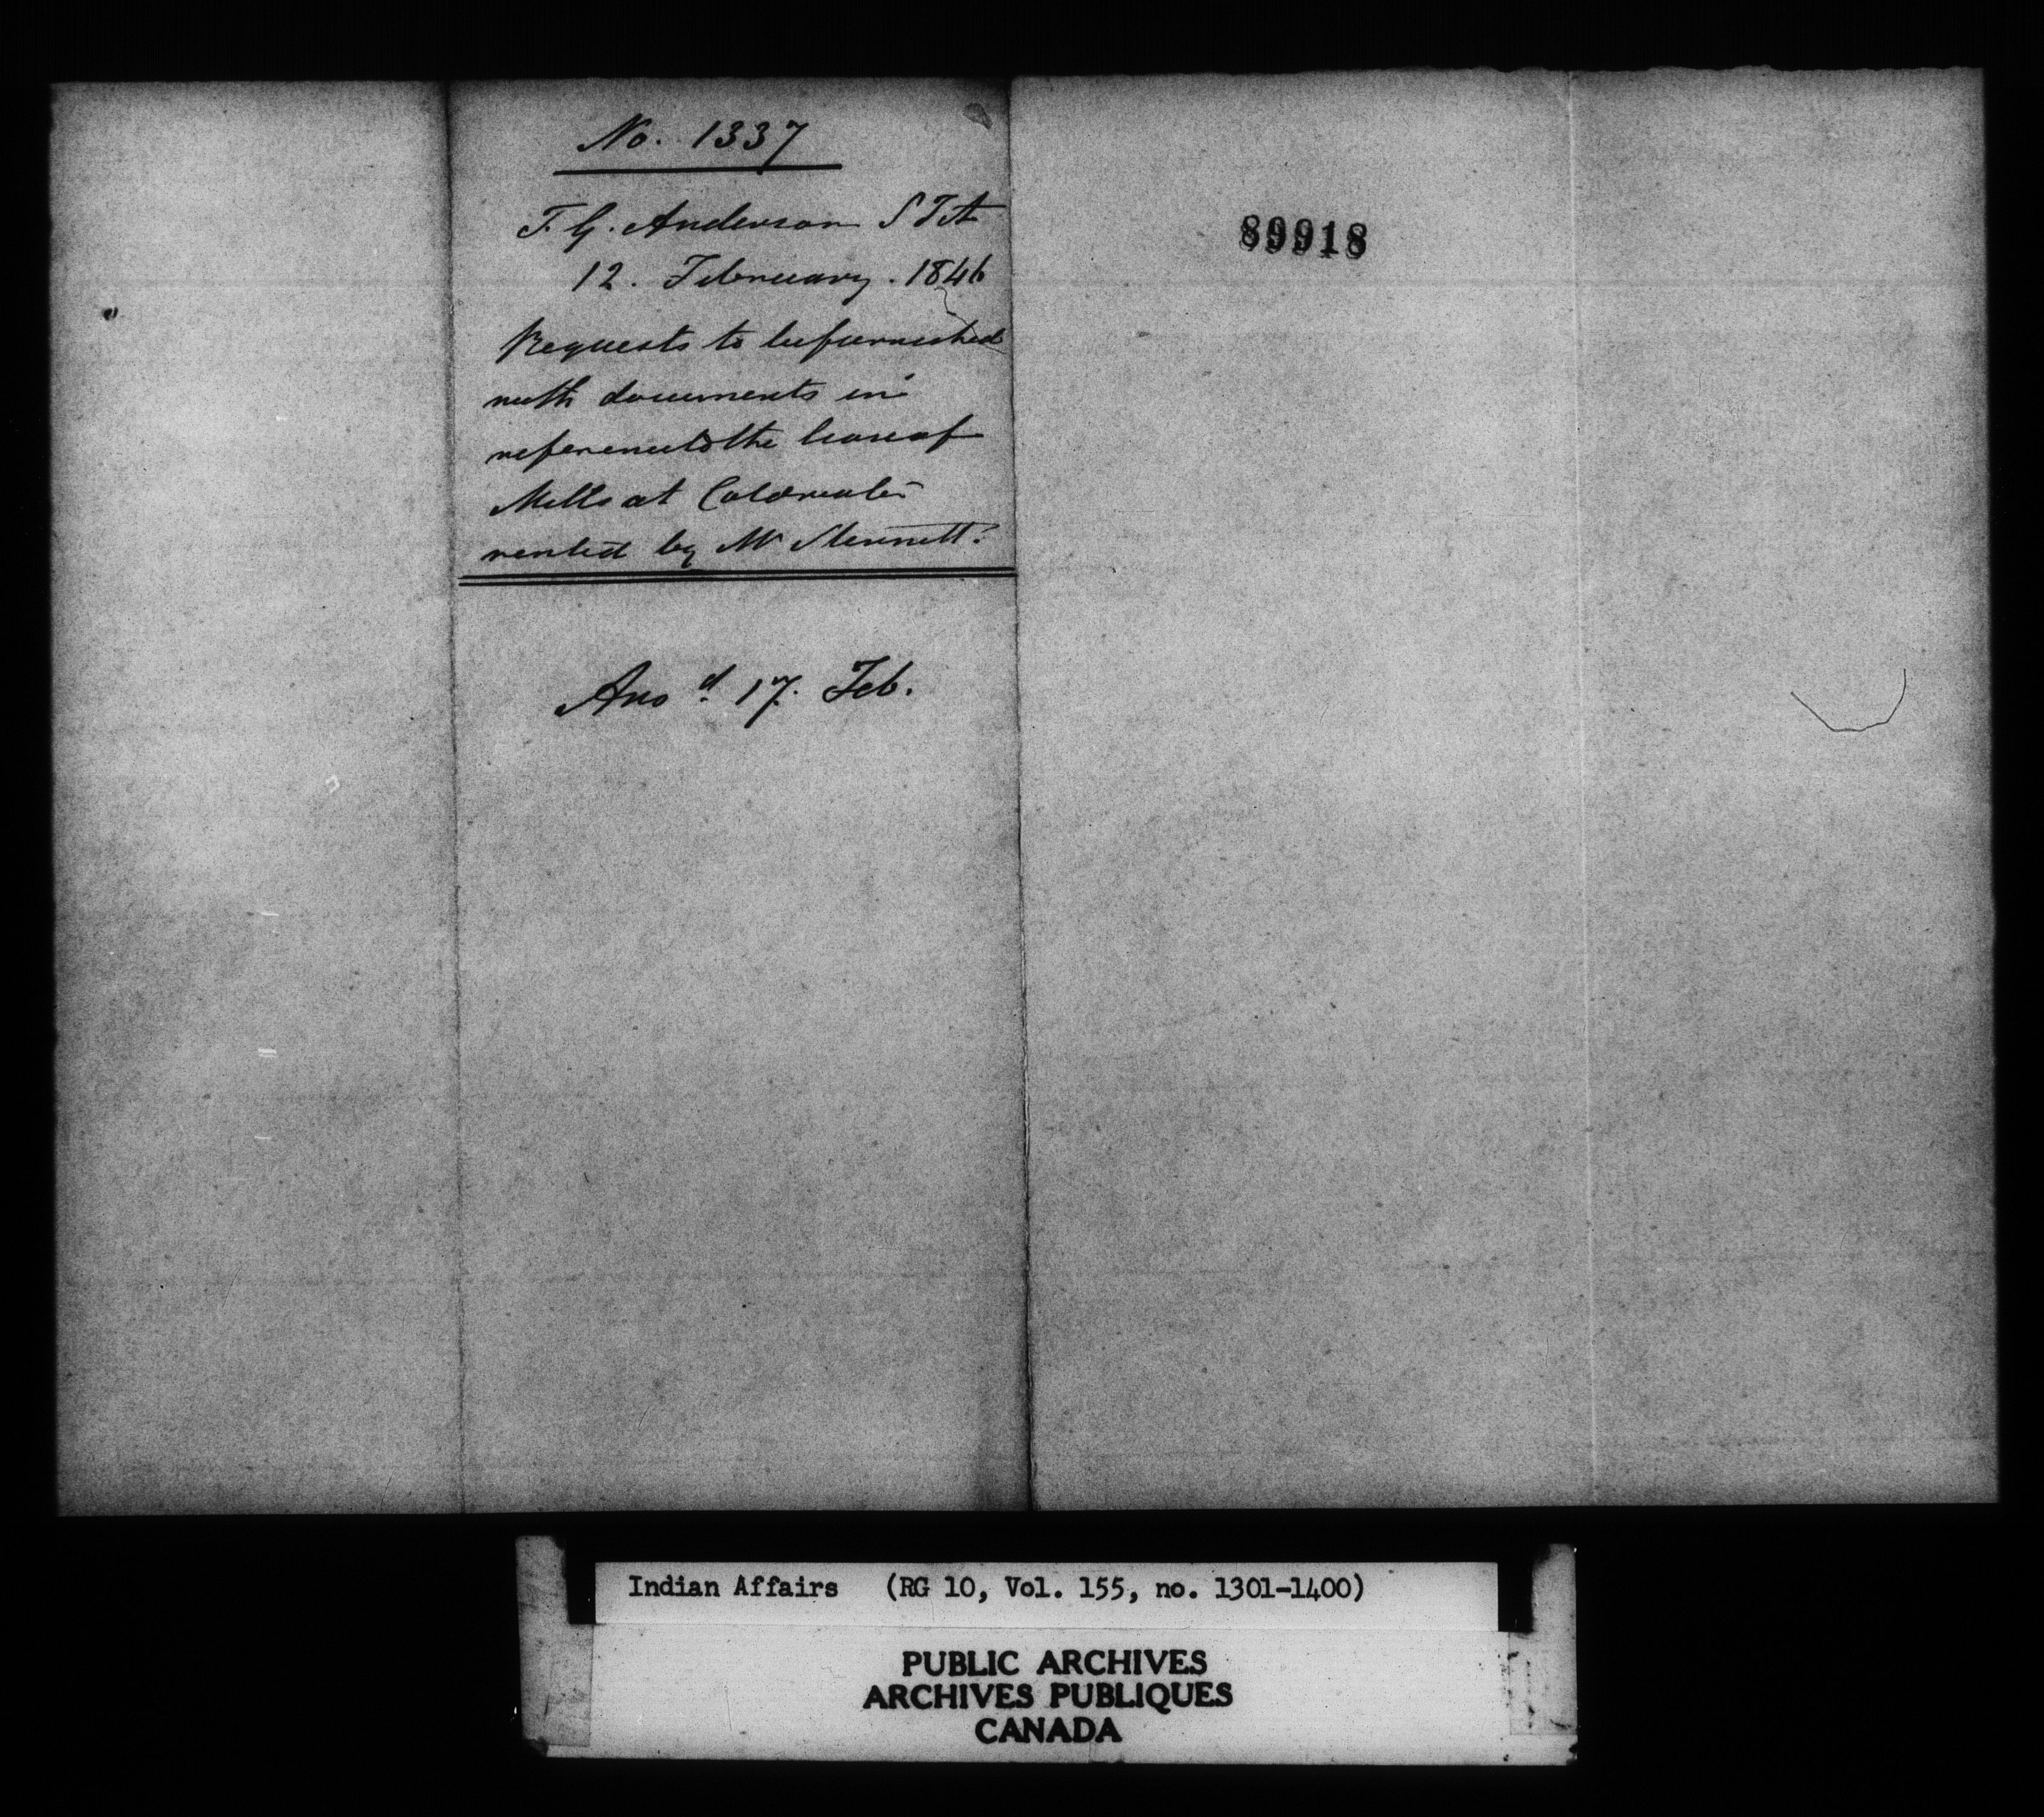 No. 1337
T. G. Anderson S I A
12. February. 1846
Requests to be furnished
with documents in
reference to the lease of
Mills at Coldwater
rented by Mr Stennett.
Ans d. 17. Feb.
89918
Indian Affairs (RG 10, Vol. 155, no. 1301-1400)
PUBLIC ARCHIVES
ARCHIVES PUBLIQUES
CANADA